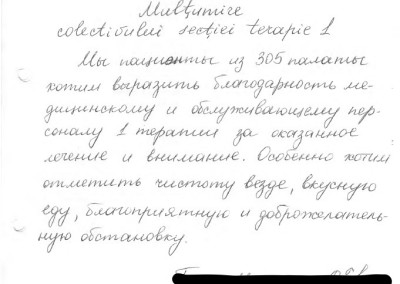 Mulţumire
colectivului secţiei terapie 1
Мы пациенты из 305 палаты
хотим выразить благодарность ме-
дицинскому и обслуживающему пер-
соналу 1 терапии за оказанное
лечение и внимание. Особенно хотим
отметить чистоту везде, вкусную
еду, благоприятную и доброжелатель-
ную обстановку.